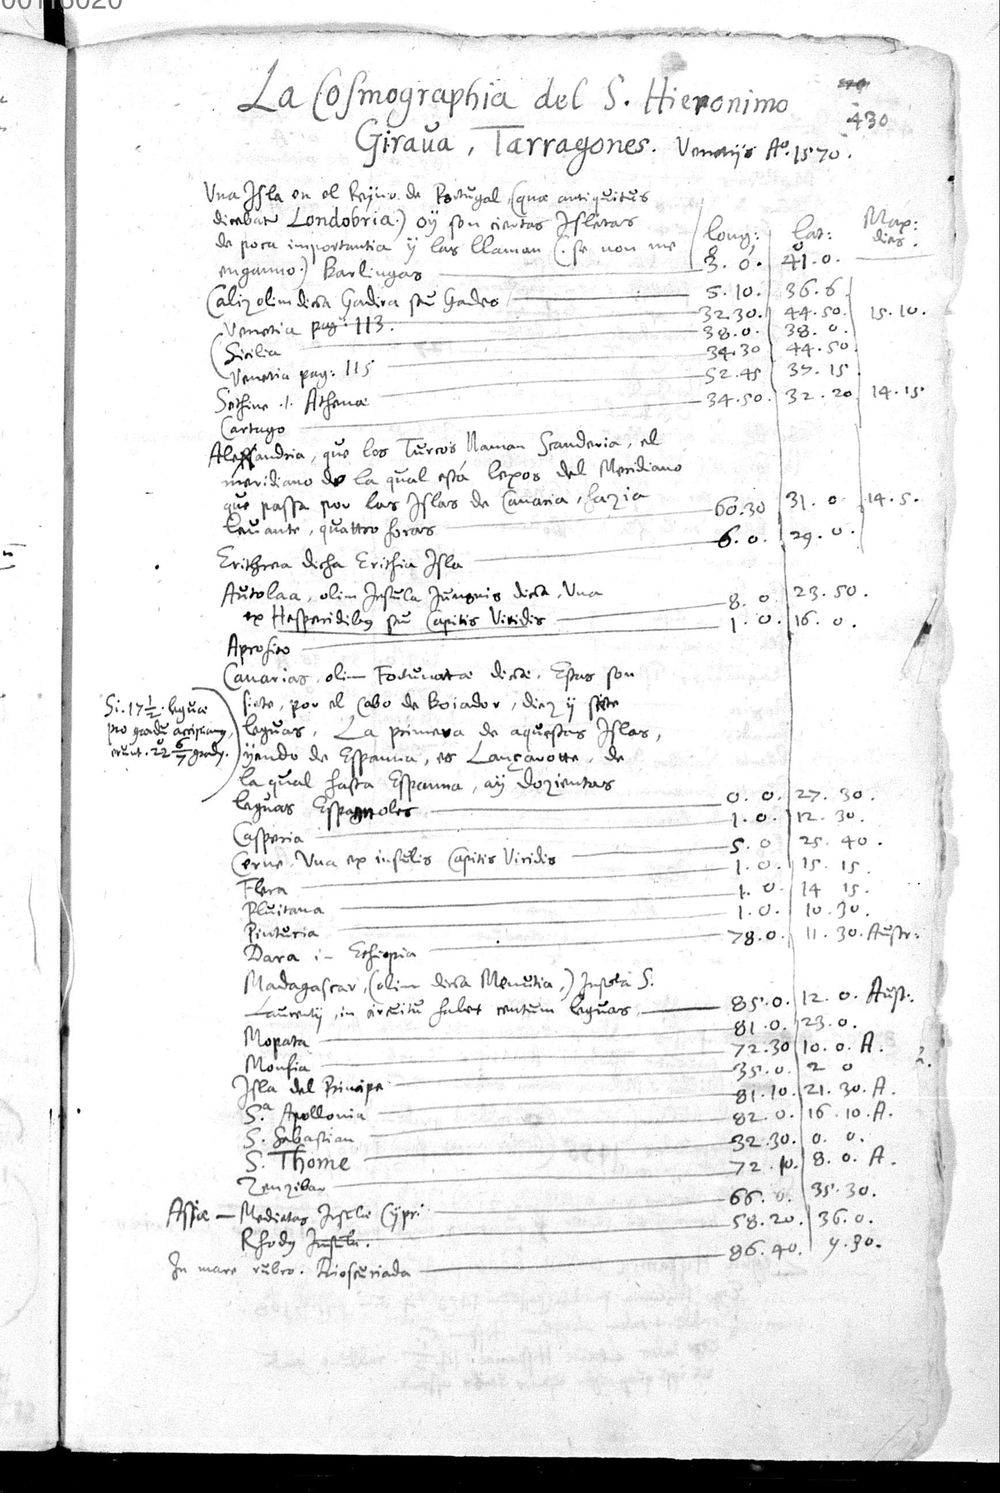 La Cosmographia del S. Hieronimo
430
Giraua, Tarragones. Venetijs Aº. 1570.
Vna Isla en el Reyno de Portugal (quæ antiquitus
dicebatur Londobria.) oÿ son ciertas Isletas
de poca importantia ÿ las llaman (. se non me | long: | lat: | Max: dies.
enganno.) Barlingas — 3. 0. | 41. 0.
Caliz olim dicta Gadira seu Gades — 5. 10. | 36. 6
Venetia pag. 113. — 32. 30. | 44. 50. | 15. 10.
Sicilia — 38. 0. | 38. 0.
Venetia pag. 115 — 34. 30 | 44. 50.
Sethine .i. Athenæ — 52. 45 | 37. 15
Cartago — 34. 50. | 32. 20 | 14. 15
Alessandria, que los Turcos llaman Scanderia, el
meridiano de la qual está lexos del Meridiano
que passa por las Islas de Canaria, hazia
leuante, quattro horas — 60. 30 | 31. 0 | 14. 5.
Erithrea dicha Erithia Isla — 6. 0. | 29. 0.
Autolaa, olim Insula Junonis dicta, Vna
ex Hesperidibus seu Capitis Viridis — 8. 0. | 23. 50.
Aprosito — 1. 0. | 16. 0.
Canarias, olim Fortunatæ dictæ. Estas son
siete, por el Cabo de Boiador, diez ÿ siete
leguas. La primera de aquestas Islas,
ÿendo de Espanna, es Lançarotte, de
la qual hasta Espanna, aÿ dozientas
leguas Espagnoles — 0. 0. | 27. 30.
Si. 17 1/2. leguæ
pro gradu accipiantur,
erunt. 22 6/7 gradus.
Casperia — 1. 0. | 12. 30.
Cerne. Vna ex insulis Capitis Viridis — 5. 0 | 25. 40.
Flera — 1. 0. | 15. 15.
Pluitana — 1. 0. | 14 15.
Pinturia — 1. 0. | 10. 30.
Dara in Ethiopia — 78. 0. | 11. 30. Austr.
Madagascar, (olim dicta Menutia,) Insula S.
Laurentij, in circuitu habet centum leguas, — 85. 0. | 12. 0. Aust.
Mopata — 81. 0. | 23. 0.
Monfia — 72. 30 | 10. 0. A.
Isla del Principe — 35. 0. | 2 0
S.ª Apollonia — 81. 10. | 21. 30. A
S. Sabastian — 82. 0. | 16. 10. A.
S. Thome — 32. 30. | 0. 0.
Zenzibar — 72. 10. | 8. 0. A.
Asiæ — Medietas Insulæ Cÿpri — 66. 0. | 35. 30.
Rhody Insulæ. — 58. 20. | 36. 0.
In mare rubro. Dioscuriada — 86. 40. | 9. 30.